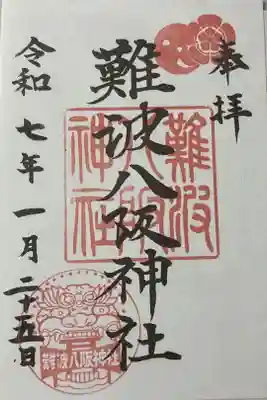 奉拝
難波八阪神社
難波
八阪
神社
令和七年一月二十五日
難波八阪神社